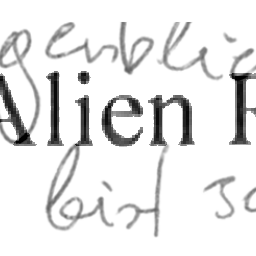 genblic
Alien R
bist so